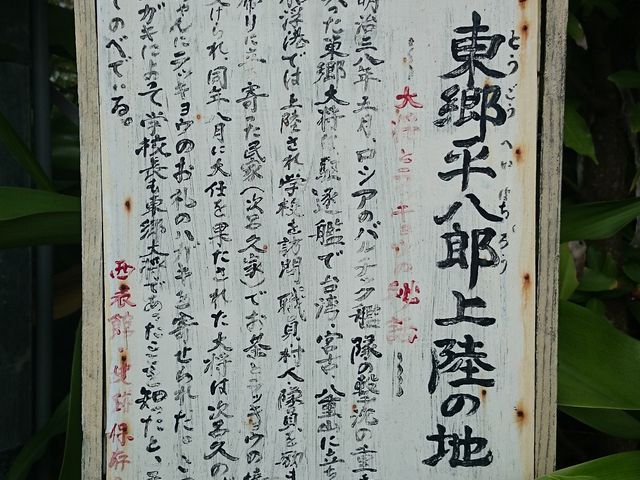 東郷平八郎上陸の地
とうごうへいはちろう
大将とラッキョウの秘話
明治三八年五月、ロシアのバルチック艦隊の撃沈の重
った東郷大将は駆逐艦で台湾・宮古・八重山に立ち
港では上陸され学校を訪問、職員、村人、隊員を励ま
帰りに立寄った民家(次呂久家)でお茶とラッキョウの
受けられ、同年八月に大任を果たされた大将は次呂久の
ちゃんにラッキョウのお礼のハガキを寄せられた。
がきによって学校長も東郷大将であったことを知ったと、
てのべている。
西表館・史跡保存